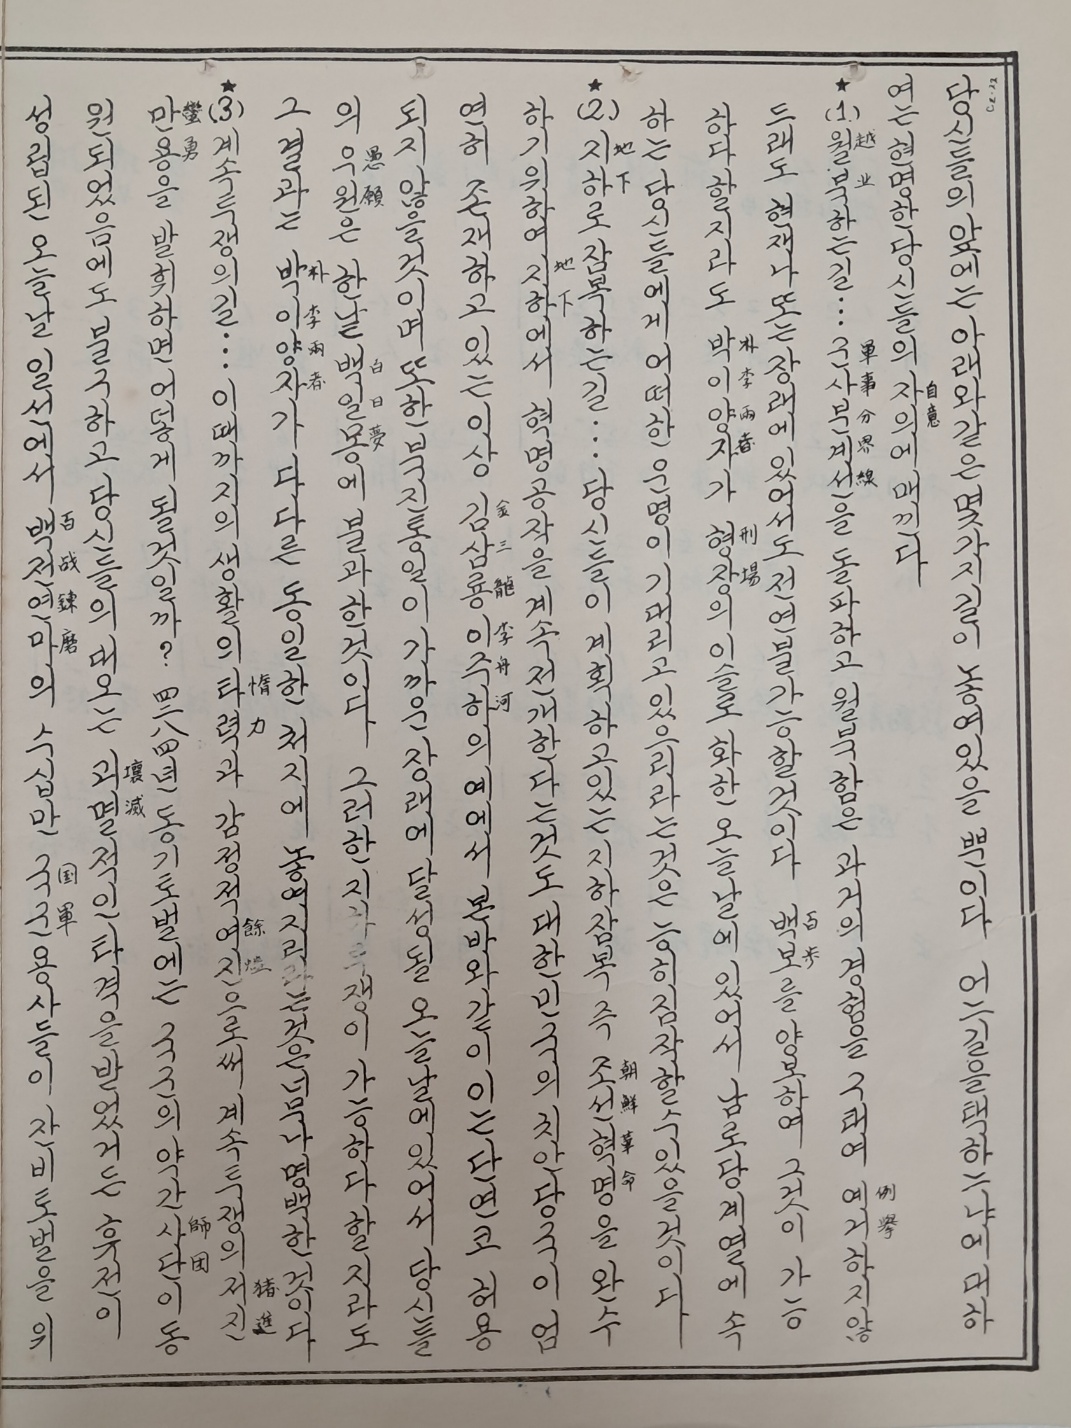 당신들의 앞에는 아래와같은 몇가지길이 놓여있을 뿐이다 어느길을택하느냐에 대하
여는현명한당신들의 자의에매낀다
自意
★
(1)월북하는길...군사분계선을 돌파하고 월북함은 과거의 경험을 구태여 예거하지않
越北 軍事分界線 例擧
드래도 현재나 또는장래에 있어서도 전연불가능할것이다 백보를 양보하여 그것이 가능
百步
하다 할지라도 박이양자가 형장의 이슬로 화한 오늘날에 있어서 남로당 계열에 속
朴李兩者 刑場
하는 당신들에게 어떠한 운명이 기대리고 있으리라는것은 능히짐작할수있을것이다
★
(2)지하로잠복하는길...당신들이 계획하고있는 지하잠복 즉 조선혁명을 완수
地下 朝鮮革命
하기위하여 지하에서 혁명공작을 계속전개하다는것도 대한민국의 치안당국이 엄
地下
연히 존재하고 있는이상 김삼룡 이주하의 예에서 본바와같이 이는단연코 허용
金三龍 李舟河
되지 않을것이며 또한북진통일이 가까운 장래에 달성될 오늘날에있어서 당신들
의 우원은 한낱 백일몽에 불과한것이다 그러한 지하투쟁이 가능하다 할지라도
愚願 白日夢
그 결과는 박이양자가 다다른 동일한 처지에 놓여지리라는것은너무나 명백한 것이다
朴李兩者
★
(3)계속투쟁의길...이때까지의 생활의 타력과 감정적여진으로써 계속투쟁의 저진
惰力 餘燼 猪進
만용을 발휘하면 어덯게 될것일까? 四二八四년 동기토벌에는 국군의 약간사단이 동
蠻勇 師団
원되었음에도 불구하고 당신들의 대오는 괴멸적인타격을받었거든 휴전이
壞滅
성립된 오늘날 일선에서 백전연마의 수십만 국군용사들이 잔비토벌을 위
百战鍊磨 国軍